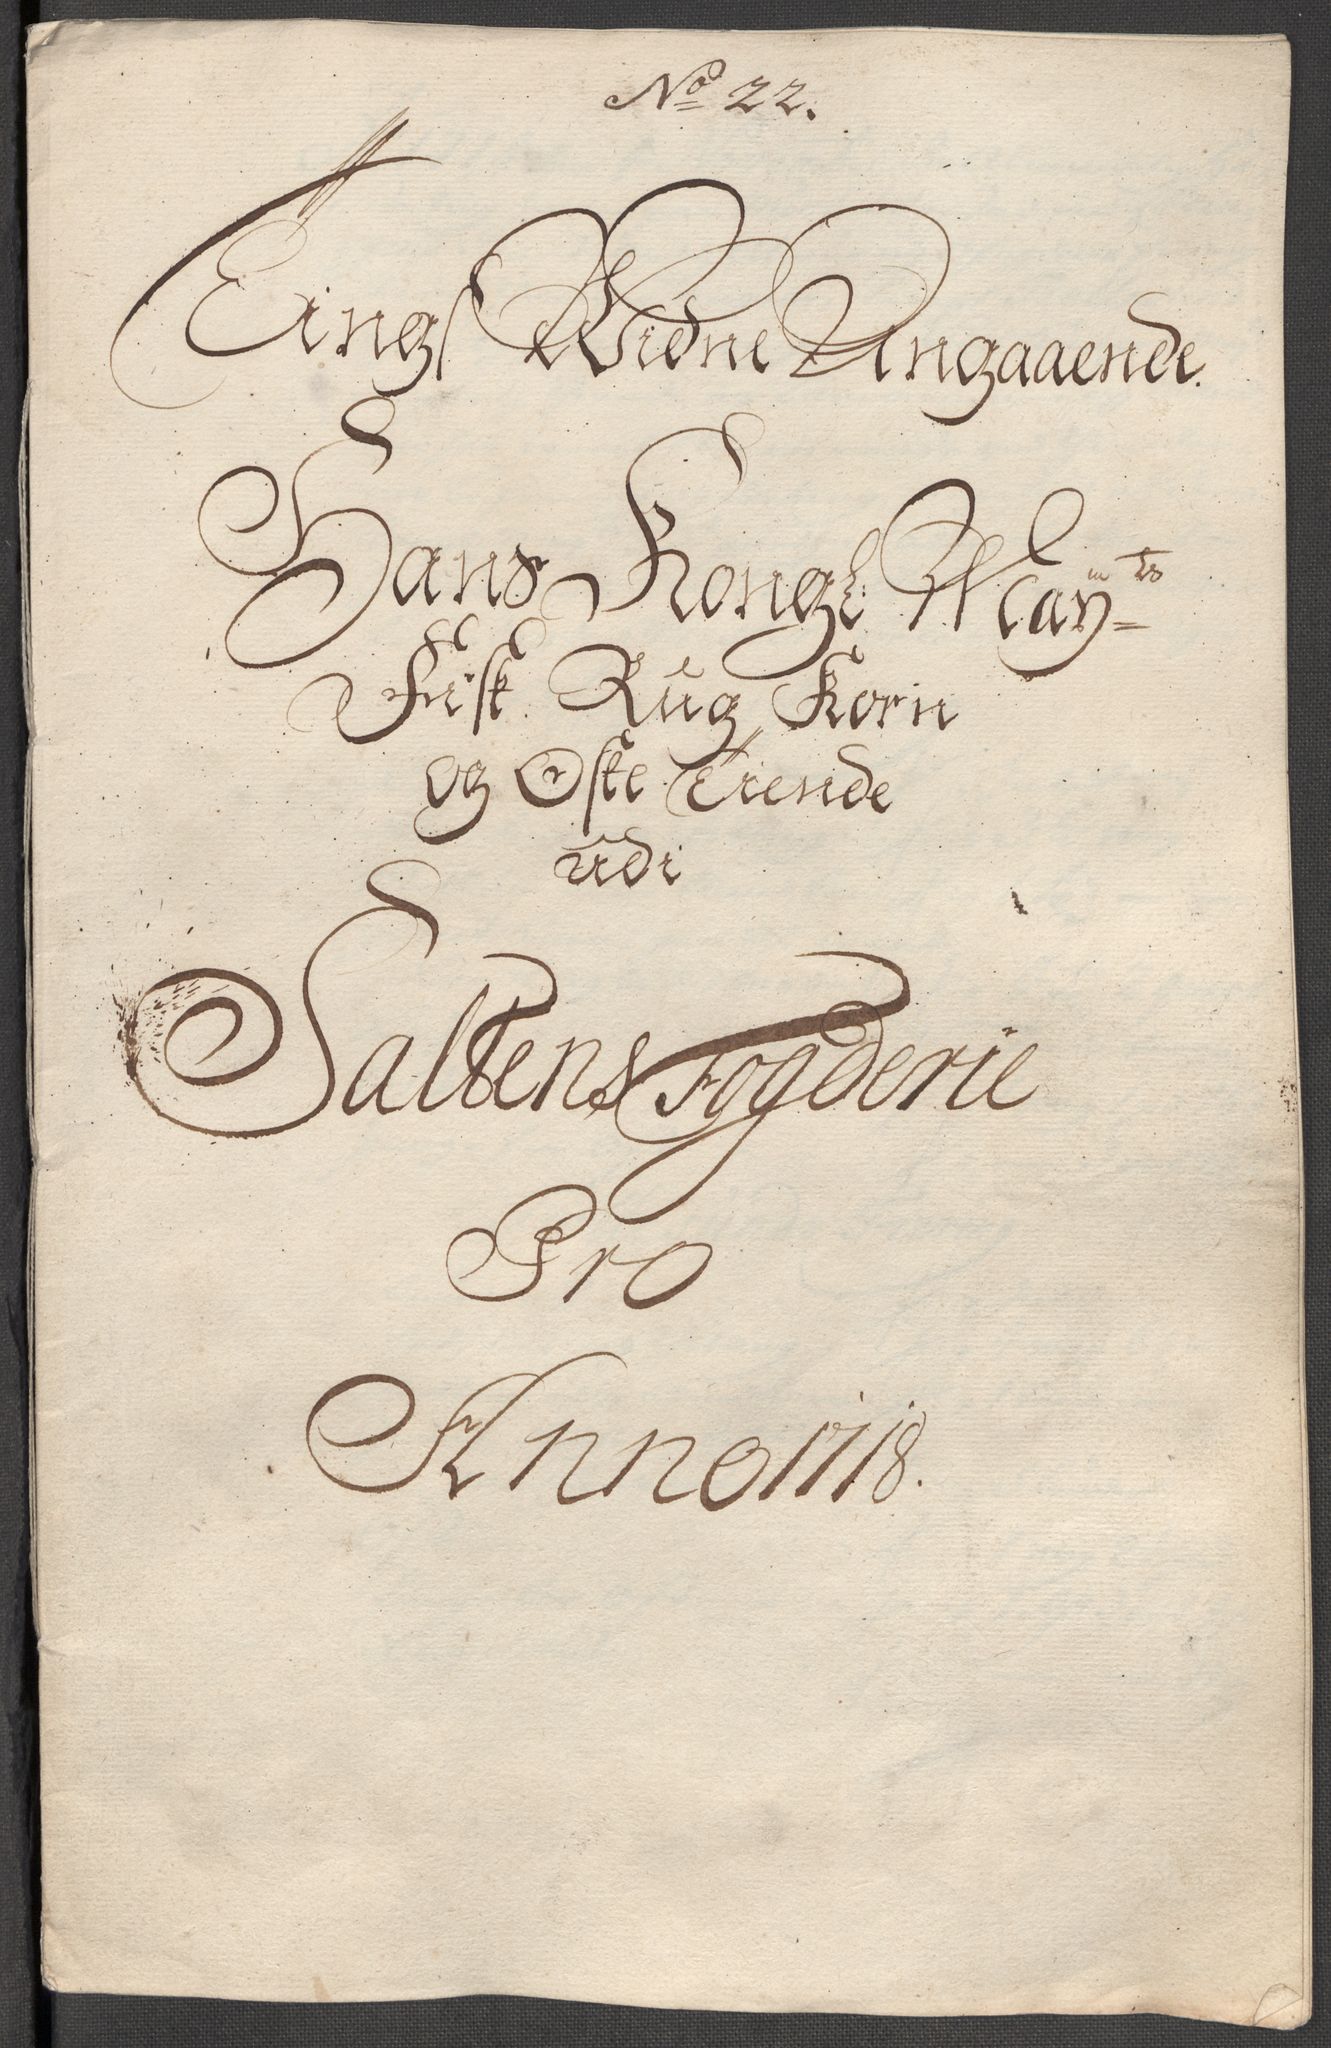 No 22.
Tings Widne Angaaende.
Hans Kongl Mayts
Fisk Rug Korn
og Oste Tiende
udi
Saltens Fogderie
Pro
Anno 1718.